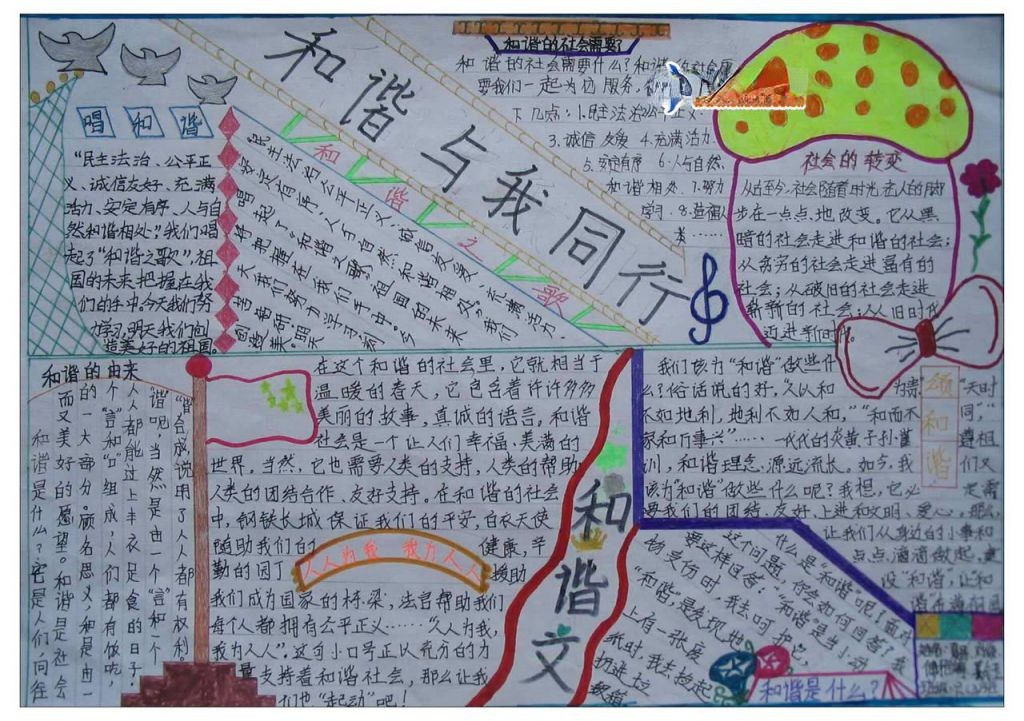 和谐与我同行
唱和谐
"民主法治、公平正
义、诚信友好、充满
活力、安定有序、人与自
然和谐相处"我们唱
起了"和谐之歌",祖
国的未来把握在我
们的手中。今天我们努
力学习,明天我们创
造美好的祖国。
和谐之歌
民主法治公平正义,诚信友爱、充满活力、
安定有序、人与自然和谐相处,我们
唱起了"和谐之歌,在国的未来
把握在我们手中。今
天我们努力学习
创造美
和谐的社会需要
和谐的社会需要什么?和谐
要我们一起为切服务,
下几点:1.民主法治
3.诚信友爱 4.充满活力
5.安定有序 6.人与自然
和谐相处 7.努力
学习 8.
社会的转变
从古至今,社会随着时光老人的脚
步在一点点地改变。它从黑
暗的社会走进和谐的社会;
从贫穷的社会走进富有的
社会;从破旧的社会走进
崭新的社会;从旧时代
迈进新时代
和谐的由来
和谐是什么?它是人们向往
而又美好的愿望。和谐是社会
的一大部分。顾名思义,和是由一
个"言和"口"组成,人们都有做吃,
人人都能过上丰衣足食的日子
谐呢,当然是由一个"言"和一个
"皆"合成,说明了人人都有权利。
在这个和谐的社会里,它就相当于
温暖的春天,它包含着许许多多
美丽的故事,真诚的语言。和谐
社会是一个让人们幸福、美满的
世界。当然,它也需要人类的支持,人类的帮助
人类的团结合作、友好支持。在和谐的社会
中,钢铁长城保证我们的平安,白衣天使
随助我们的健康,辛
勤的园丁援助
我们成为国家的栋梁,法官帮助我们
每个人都拥有公平正义……"人人为我,
我为人人"。这句小口号正以充分的力
量支持着和谐社会,那么让我
们也"起动"吧!
人人为我 我为人人
和谐文
颂和谐
我们该为"和谐"做些什
么?俗话说的好,"人以和为贵,"天时
不如地利,地利不如人和,""和而不同",
家和万事兴"……一代代的炎黄子孙谨遵祖
训,和谐理念,源远流长。如今,我们又
该为"和谐"做些什么呢?我想,它必定需
要我们的团结、友好、上进和文明、爱心,那么,
让我们从身边的小事和
点点滴滴做起,建
设"和谐",让和
什么是"和谐"呢!面对
这个问题,你会如何回答?我
要这样回答:"和谐"是当小动
物受伤时,我去呵护它,
"和谐"是发现地
上有一张废
纸时,我去捡起
扔进垃
圾箱
和谐是什么?